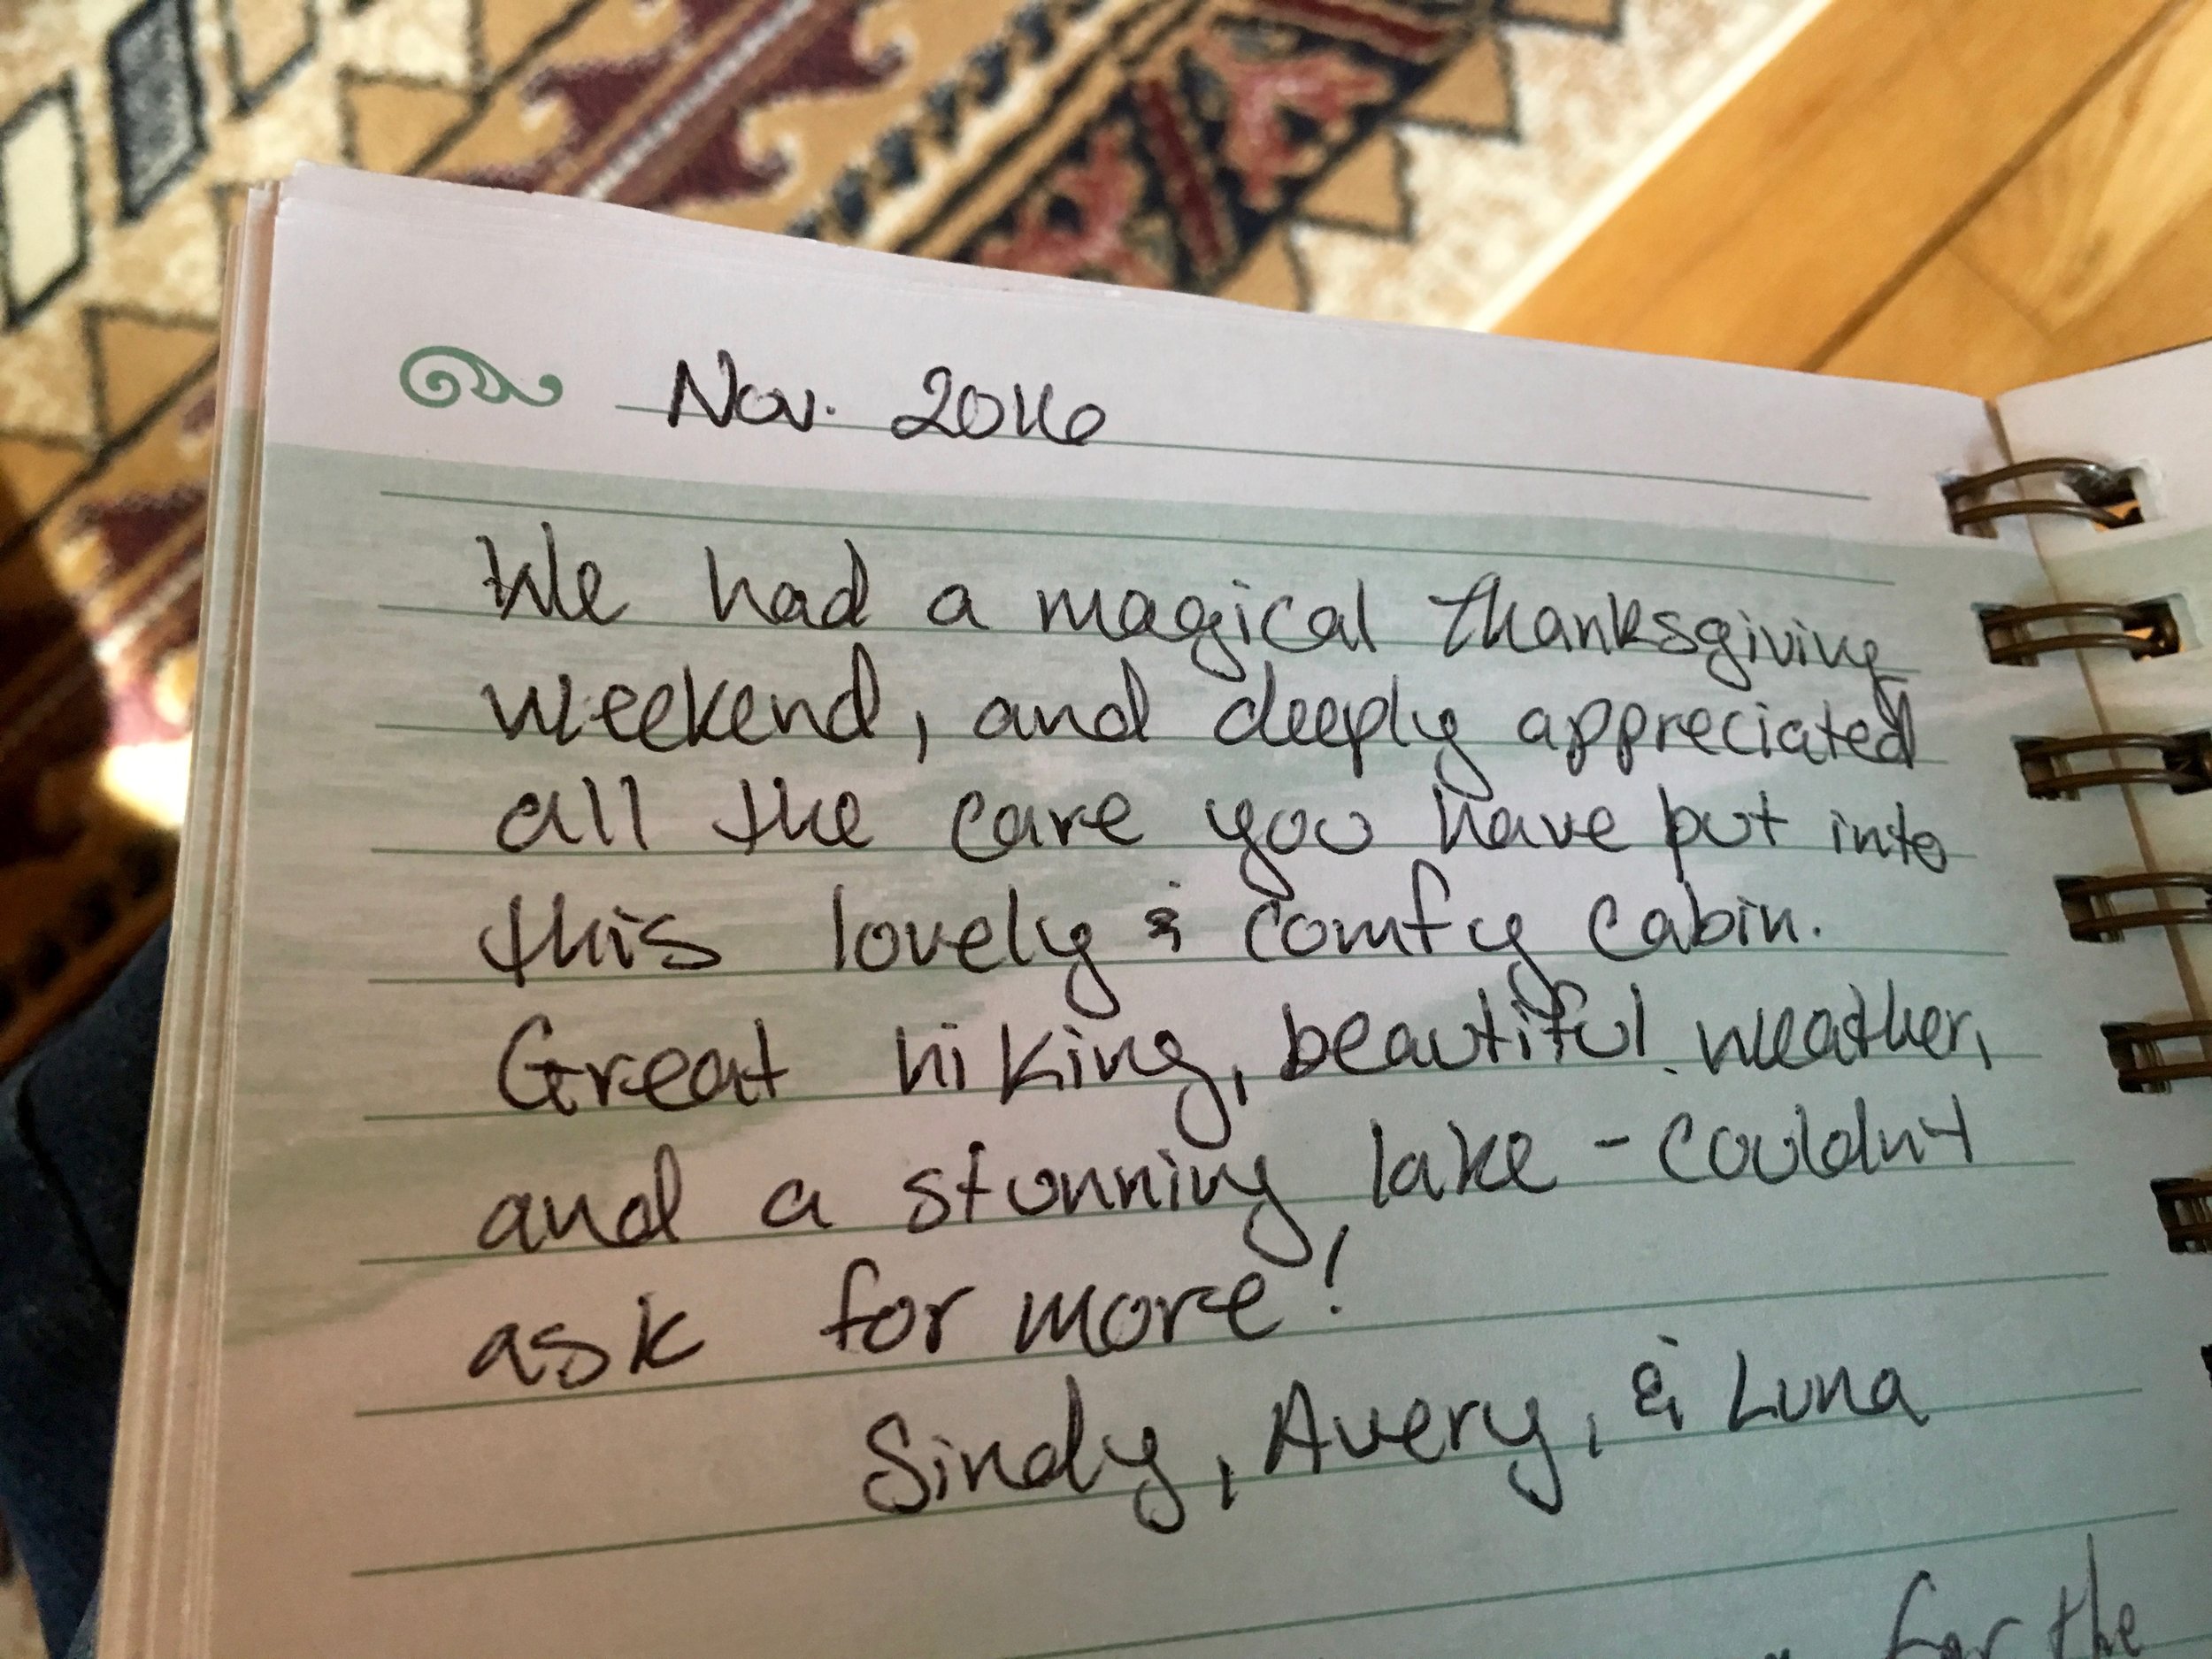 Nov. 2016
We had a magical Thanksgiving
weekend, and deeply appreciated
all the care you have put into
this lovely & comfy cabin.
Great hiking, beautiful weather,
and a stunning lake - couldn't
ask for more!
Sindy, Avery, & Luna
for the